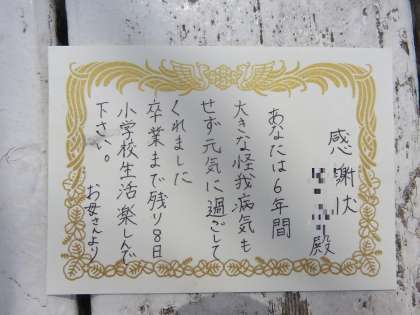 感謝状
殿
あなたは6年間
大きな怪我病気も
せず元気に過ごして
くれました
卒業まで残り8日
小学校生活楽しんで
下さい。
お母さんより